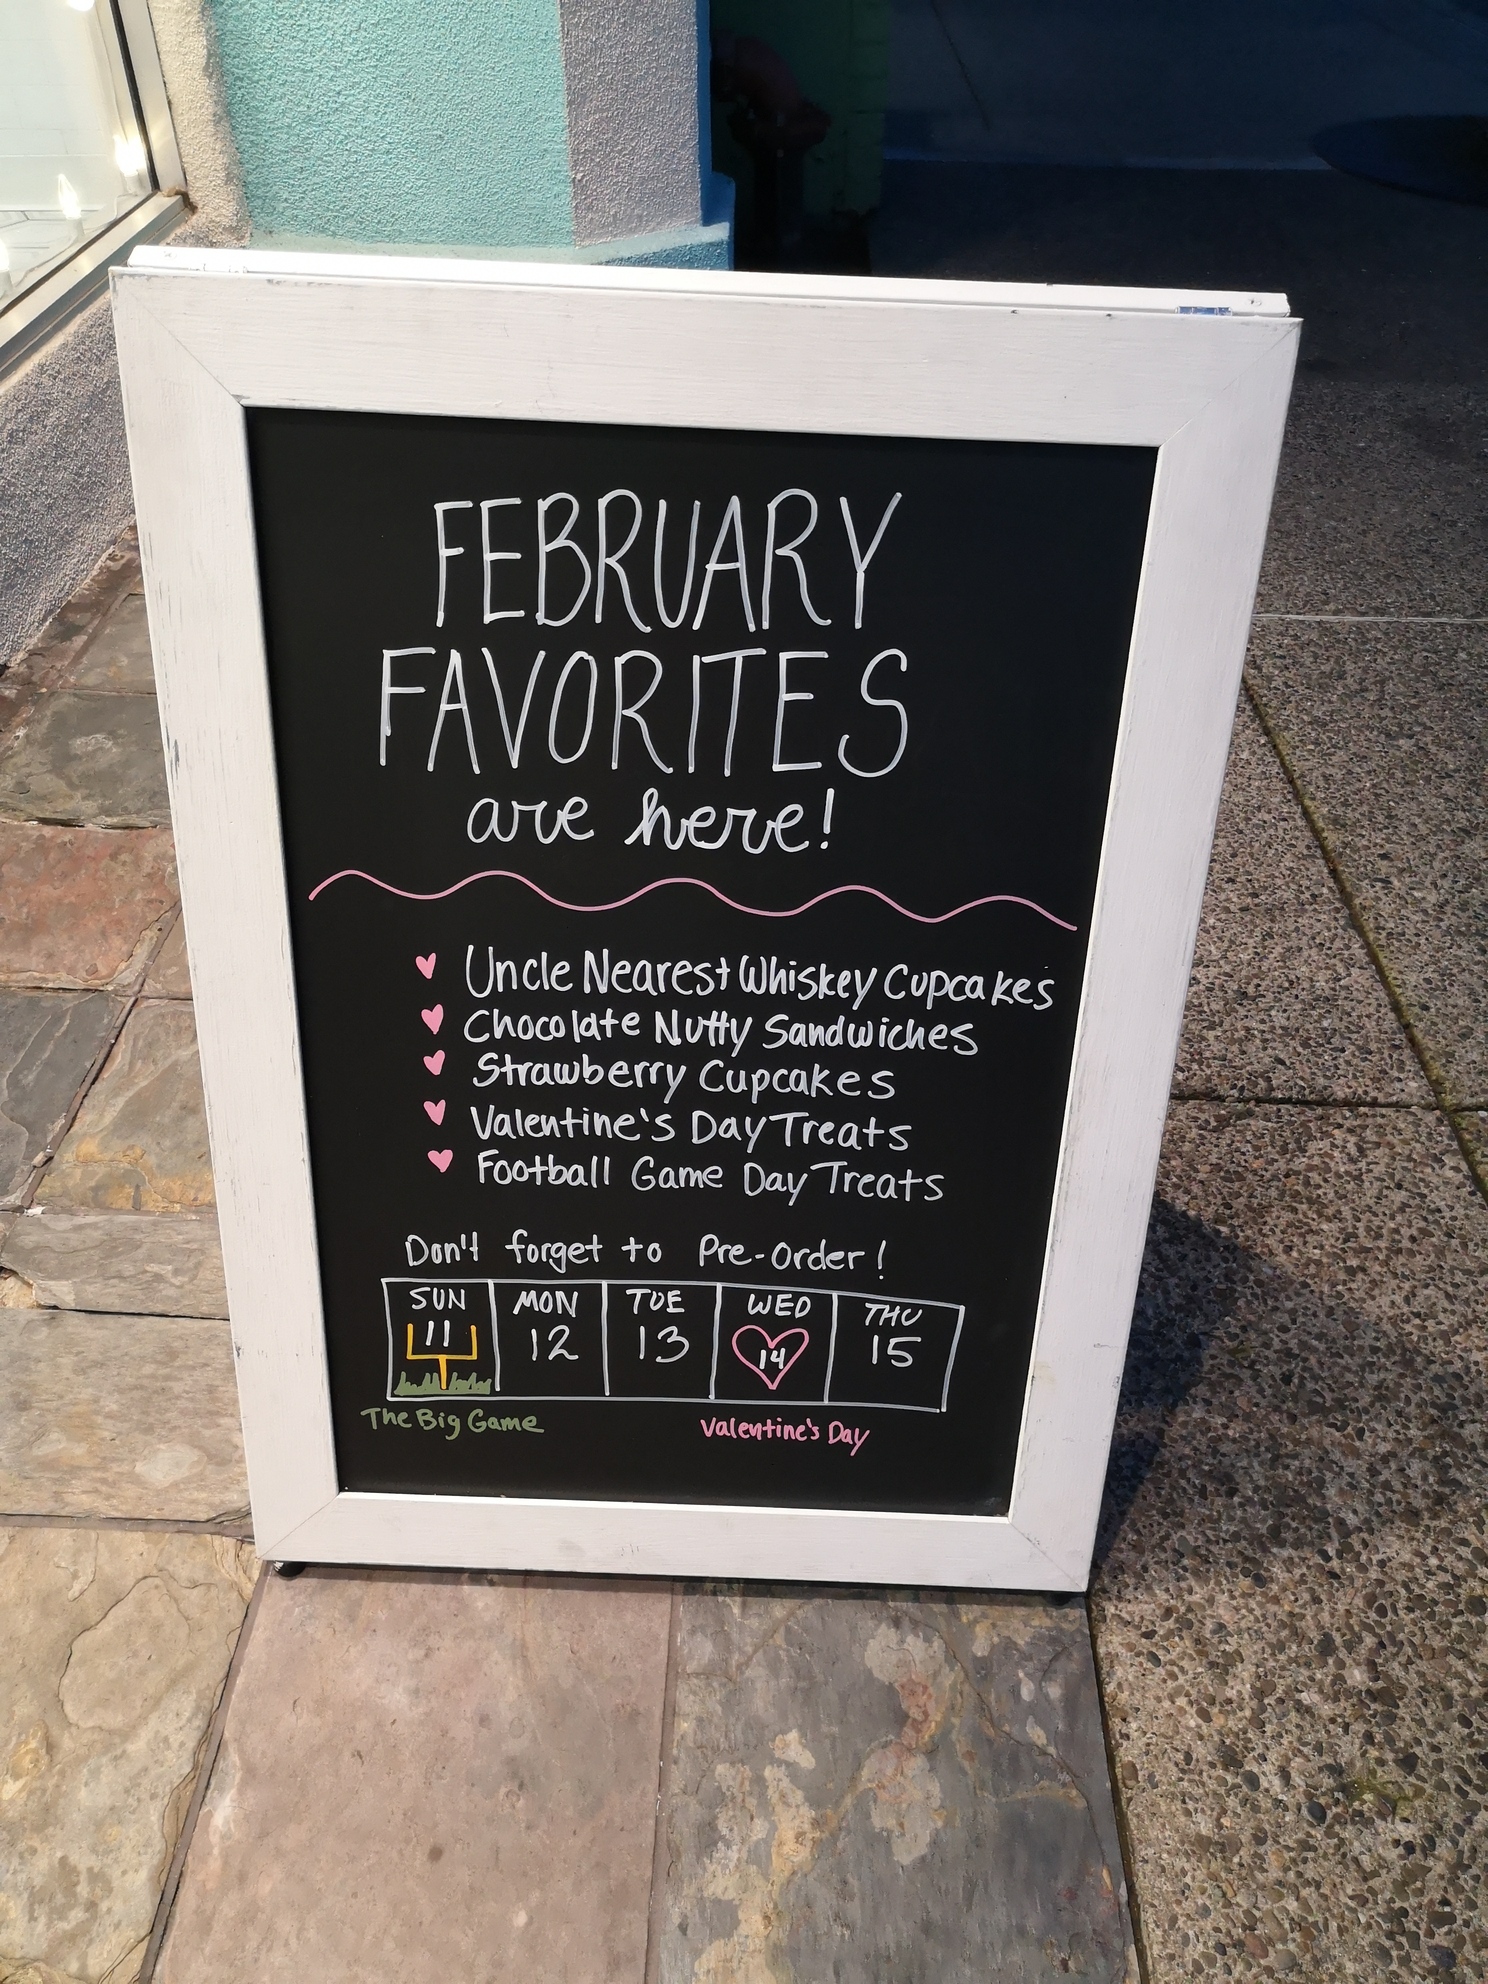 FEBRUARY
FAVORITES
are here!
Uncle Nearest Whiskey Cupcakes
Chocolate Nutty Sandwiches
Strawberry Cupcakes
Valentine's Day Treats
Football Game Day Treats
Don't forget to Pre-Order!
SUN MON TUE WED THU
11 12 13 14 15
The Big Game Valentine's Day